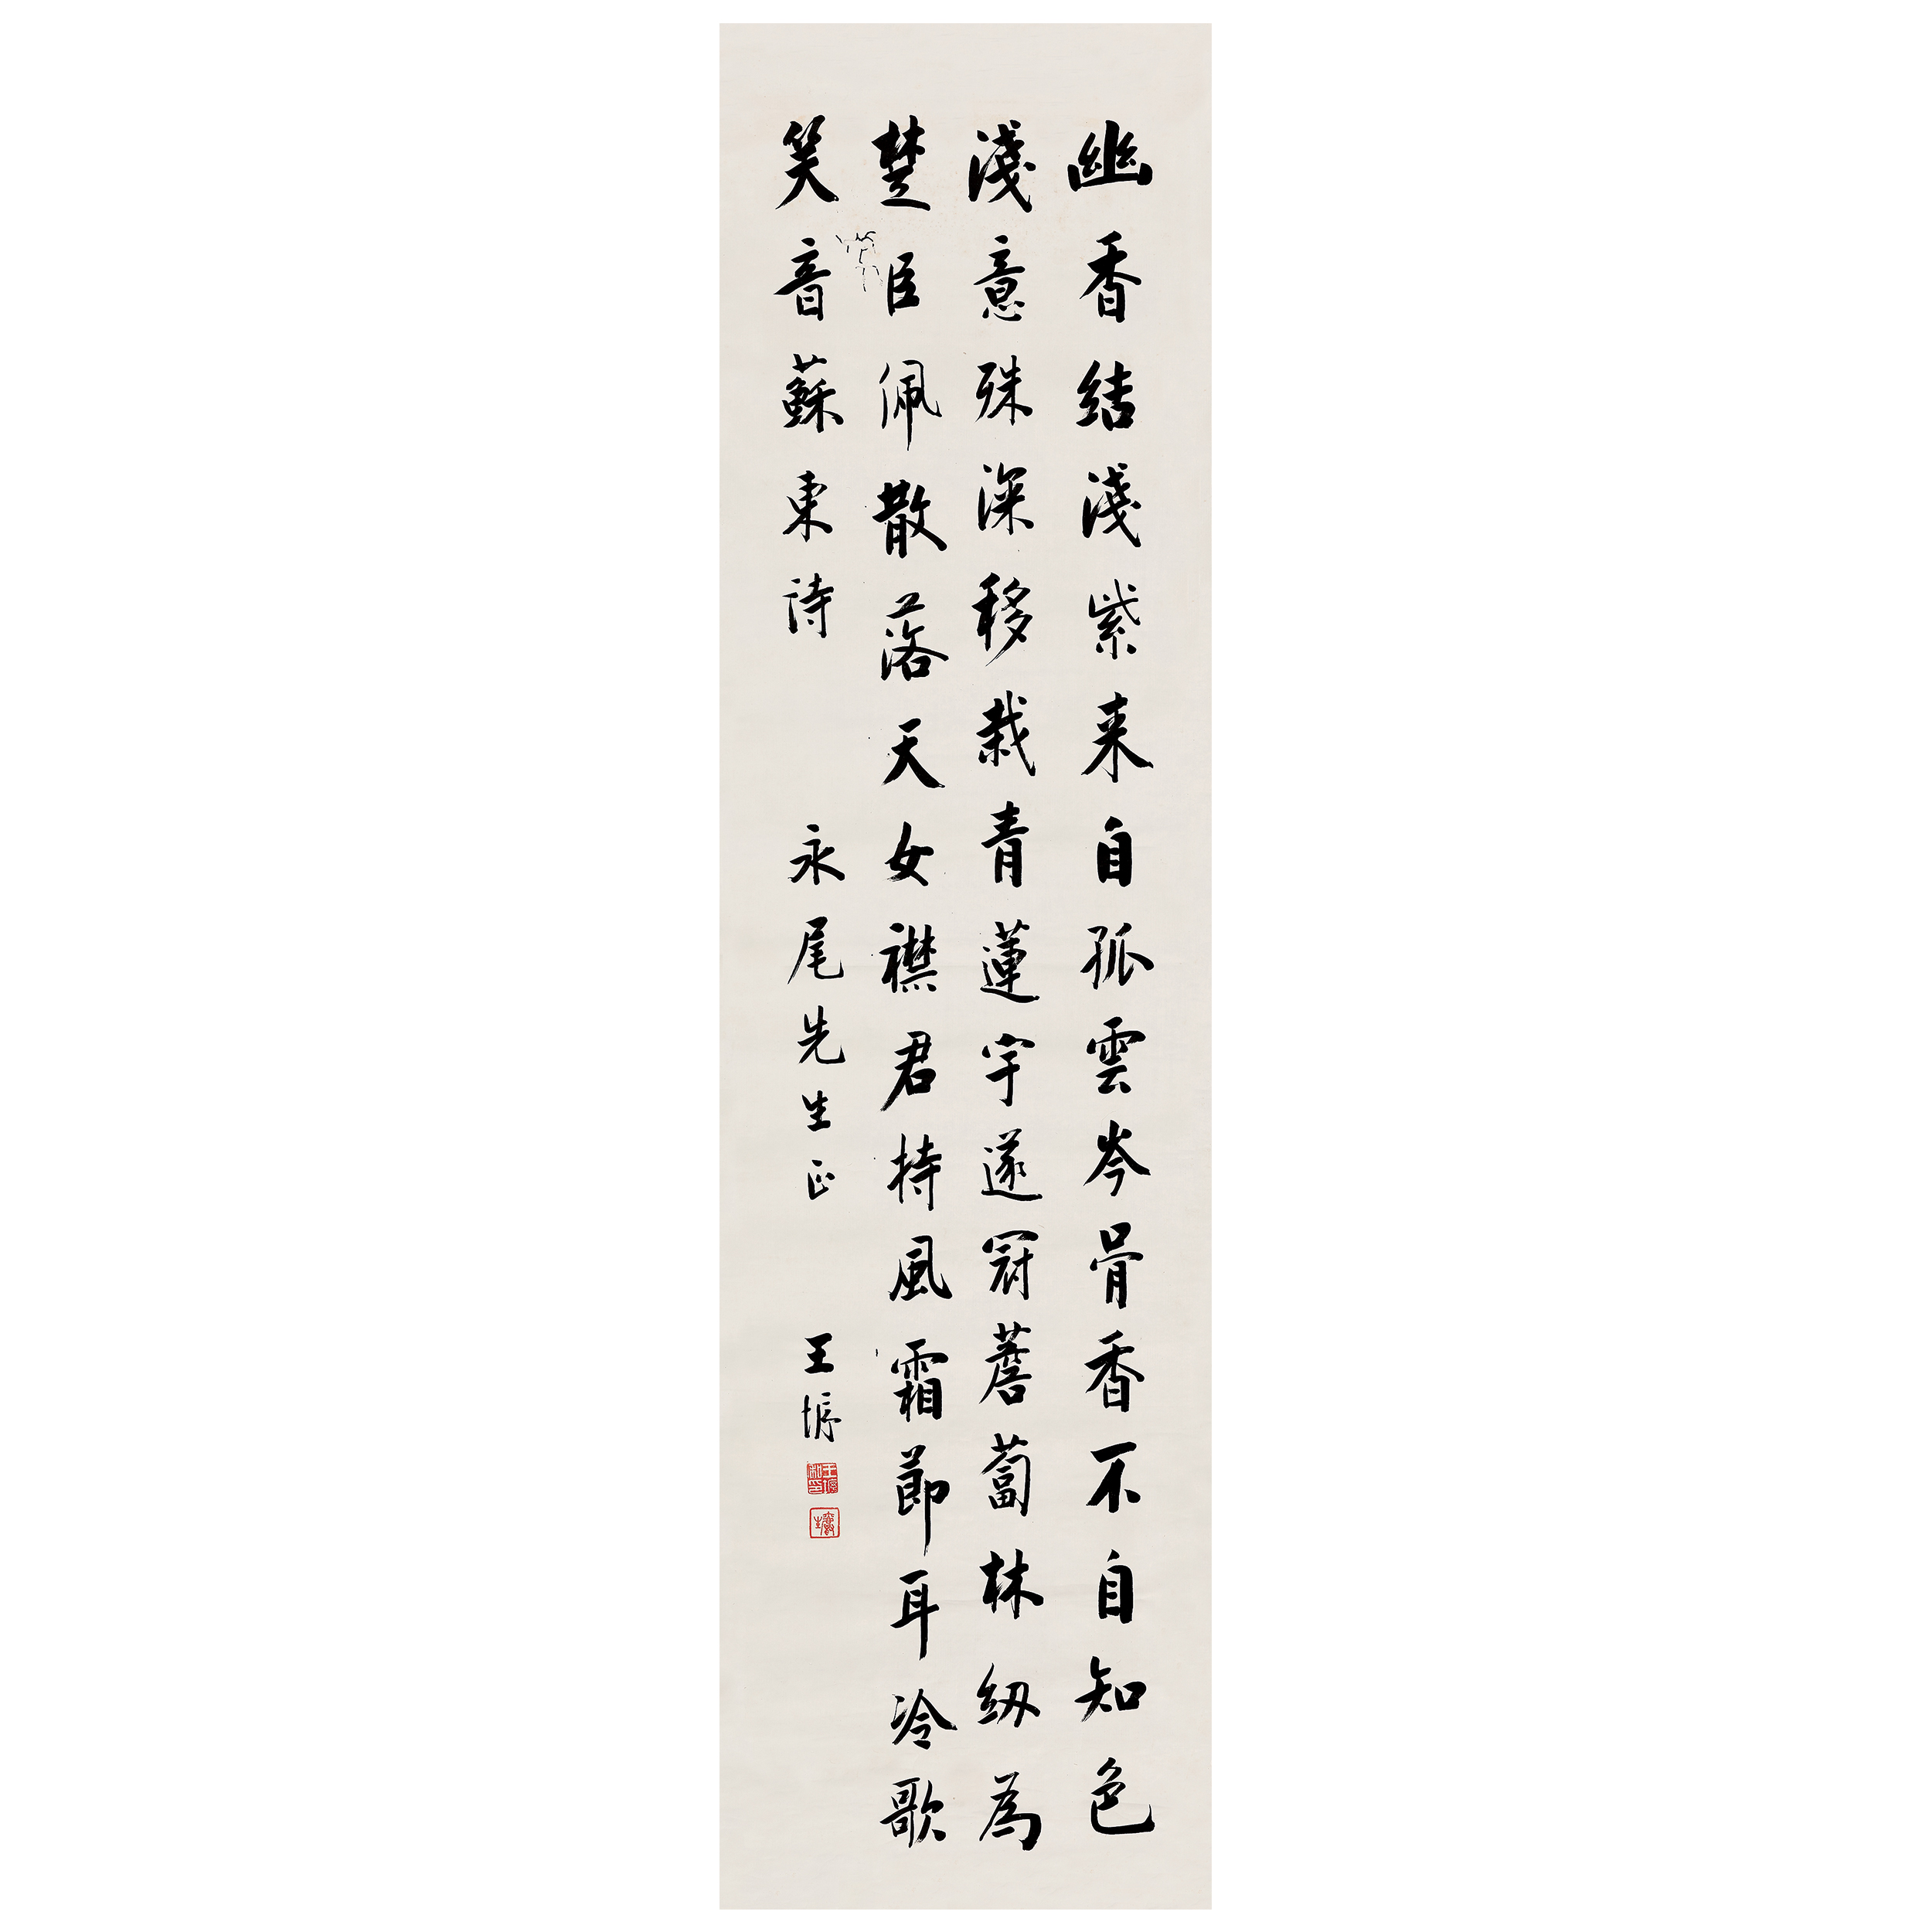 幽香結淺紫来自孤雲岑骨香不自知色
淺意殊深移栽青蓮宇遂冠薝蔔林紉為
楚臣佩散落天女襟君持風霜節耳冷歌
笑音蘇東詩 永尾先生正 王